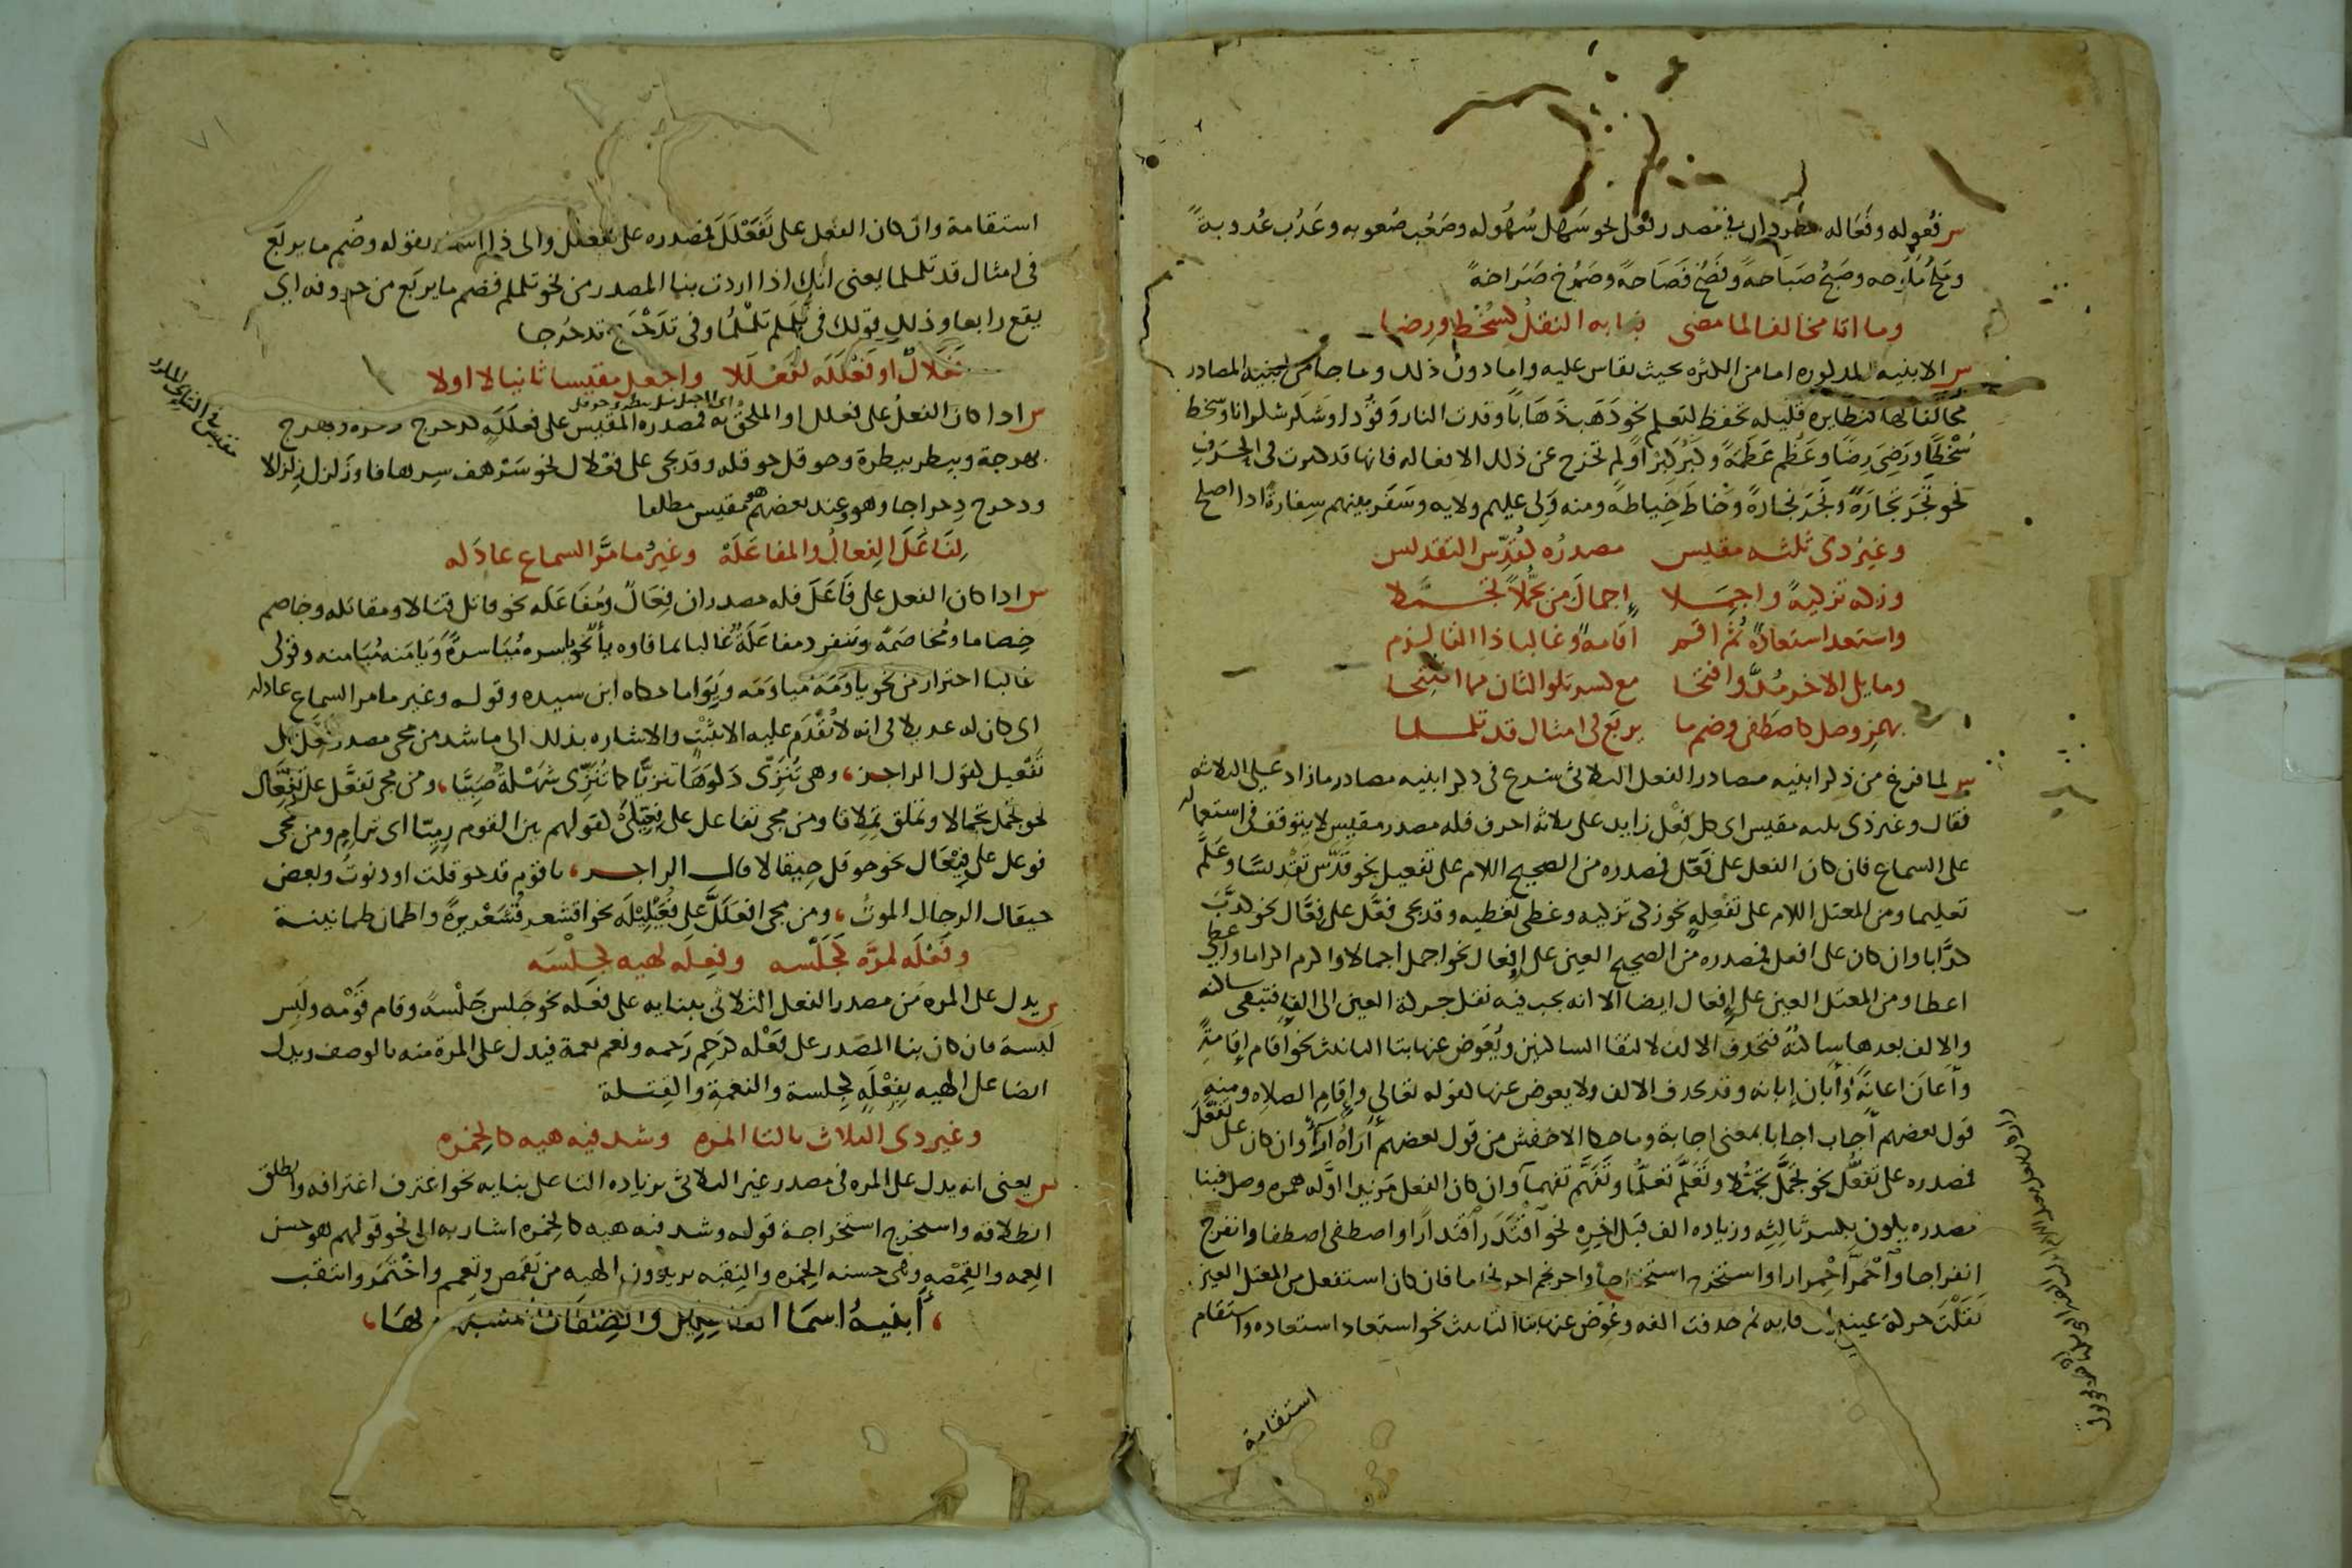 س فُعُوله وفَعَاله مطردان في مصدر فعُل نحو سَهُل سُهُوله وصَعُب صُعوبه وعَذُب عُذوبةً
ومَلُح مَلاحه وصَبُح صَبَاحةً وفَصُح فَصَاحةً وصَرُخ صَرَاخةً
وما اتا مخالفا لما مضى بابه النقلُ كسُخْطٍ ورِضَا
س الابنيه المذكوره اما من الكثره بحيث يقاس عليه واما دون ذلك وما جا من ابنية المصادر
مخالفا لها فنظايره قليله تحفظ لتعلم نحو ذَهَب ذَهَابًا وقدت النار وَقُودا وشَكَر شكرانا وسخط
سُخْطًا ورَضِيَ رِضًا وعَظُم عَظَمَةً وكَبُر كِبَرًا ولم تخرج عن ذلك الا فعاله فانها قد كثرت في الحِرَفِ
نحو تَجَر تِجَارَةً ونَجَر نجارةً وخَاطَ خِياطةً ومنه وَلِى عليهم ولايه وسَفَر بينهم سِفارةً اذا اصلح
وغيرُ ذى ثلثه مقيس مصدرُه كقُدِّس التقديس
وزكه تزكيةً واجمِلا إجمالَ من تَجَمُّلاً تجمَّلا
واستعذ استعاذةً ثُمَّ اقم اقامةً وغالبا ذا التا لزم
وما يلى الاخر مُدَّ وافتحا مع كسر تلو الثان مما افتتحا
بهمز وصل كاصطفى وضم ما يربَع في امثال قد تلملما
س لما فرغ من ذكر ابنيه مصادر الفعل الثلاثى شرع في ذكر ابنيه مصادر ما زاد على الثلاثه
فقال وغير ذى ثلثه مقيس اى كل فِعْل زايد على ثلاثه احرف فله مصدر مقيس لا يتوقف في استعماله
على السماع فان كان الفعل على فَعَّل فمصدره من الصحيح اللام على تفعيل نحو قدَّس تقْديسًا وعَلَّم
تعليما ومن المعتل اللام على تفْعِلهٍ نحو زكى تزكيه وغطى تغطيه وقد يجى فعَّل على فِعَّال نحو كذَّبَ
كذَّابا وان كان على افعل فمصدره من الصحيح العين على إفعال نحو اجمل اجمالا واكرم اكراما واعطى
اعطا ومن المعتل العين على إفعال ايضا الا انه يجب فيه نقل حركة العين الى الفا فتبقى ساكنه
والالف بعدها ساكنةً فتحذف الالف لالتقا الساكنين ويُعَوض عنها بتا التانيث نحو أقام إقامةً
وأعانَ اعانةً وأبان إبانه وقد تحذف الالف ولا يعوض عنها كقوله تعالى وإقامِ الصلاه ومنه
قول بعضهم أجاب اجابا بمعنى اجابة وما حكا الاخفش من قول بعضهم أَرَاهُ آرَاءً وان كان على تفعَّلَ
فمصدره على تَفَعُّل نحو تجَمَّل تجمُّلا وتَعَلَّم تعلُّمًا وتَفَهَّم تفهما وان كان الفعل مَزيدا اوَّله همزه وصل فبنا
مصدره يكون بكسر ثالِثِه وزياده الف قبل اخره نحو اقْتَدَرَ اقتدارًا واصطفى اصطفا وانفرج
انفراجا واحْمَرَّ احْمِرارا واستخرج استخراجا واحرنجم احرنجاما فان كان استفعل من المعتل العين
نقلَتْ حركة عينه الى فايه ثم حذفت الفه وعُوِّض عنها بتا التانيث نحو استعاذ استعاذه واستقام
استقامة
استقامة وان كان الفعل على تَفَعْلَلَ فمصدره على تفعلُل والى ذا اشار بقوله وضُم ما يربَع
في امثال قد تلملما يعنى انك اذا اردت بنا المصدر من نحو تلملم فضم ما يربَع من حروفه اى
يقع رابعا وذلك قولك في تلملم تَلَمْلُمًا وفي تَدَحْرَج تدحرُجا
فِعْلالٌ او فَعْلَلَه لفَعْللا واجعل مقيسا ثانيا لا اولا
س اذا كان الفعلُ على فعلل او الملحق به فمصدره المقيس على فعلَلَهٍ كدحرج دحرجه وبهرج
بهرجة وبيطر بيطرة وحوقل حوقله وقد يجى على فِعْلال نحو سَرْهف سِرهافا وزَلزل زِلزالا
ودحرج دِحراجا وهو عند بعضهم مقيس مطلقا
لِفَاعَلَ الفِعالُ والمفاعَلَهْ وغيرُ ما مَرَّ السماع عادَله
س اذا كان الفعل على فَاعَلَ فله مصدران فِعَالٌ ومُفَاعَلَه نحو قاتل قتالا ومقاتله وخاصم
خِصاما ومُخاصَمَةً وتنفرد مفاعَلَةٌ غالبا بما فاوه يا نحو ياسره مُيَاسرةً وَيَامَنه مُيَامنه وقولى
غالبا احتراز من نحو ياوَمَه مياوَمَه ويِوَاما حكاه ابن سيده وقوله وغير ما مر السماع عادله
اى كان له عديلا في انه لا يُقْدَم عليه الا بثَبْتٍ والاشاره بذلك الى ما شذ من مجى مصدر فعّل على
تَفْعيل كقول الراجز، وهى تُنَزِّى دَلوَهَا تنزِيًّا كما تُنَزِّى شَهْلةٌ صَبِيَّا، ومن مجى تفَعَّل على تِفِعَّال
نحو تجمَّل تِجِمَّالا وتملق تِمِلّاقا ومن مجى تفاعل على فِعِّيلَى كقولهم بين القوم رِمِيَّا اى ترامٍ ومن مجى
فوعل على فِيْعَال نحو حوقل حِيقالا قال الراجز، يا قوم قد حوقلت او دنوتُ وبعض
حيقال الرجال الموتُ، ومن مجى افعَلَلَّ على فُعَلِّيلَه نحو اقشعر قُشَعْرِيرةً واطمان طمانينة
وفَعْلَه لمرَّه كجَلْسه وفِعله لهيه كجِلْسَه
س يدل على المره من مصدر الفعل الثلاثى ببنايه على فعله نحو جَلس جَلْسةً وقام قَوْمه ولَبِس
لَبْسة فان كان بنا المصدر على فَعْله كرَحِم رَحمه ونعم نعمة فيدل على المرة منه بالوصف ويدل
ايضا على الهيه بفِعْلَهٍ كجلسة والنعمةِ والقِتلة
وغير ذى الثلاث بالتا المره وشذ فيه هيه كالخمره
س يعنى انه يدل على المره في مصدر غير الثلاثى بزياده التا على بنايه نحو اغترف اغترافه وانطلق
انطلاقه واستخرج استخراجة قوله وشذ فيه هيه كالخمره اشار به الى نحو قولهم هو حسن
العِمه والقِمْصهِ وهى حسنه الخمره والنِقبه يريدون الهيه من تَقَمّص وتعمم واخْتَمَر وانتقب
، أبنيهُ اسمَا الفاعلين والصِفَات المشبهه بهَا،